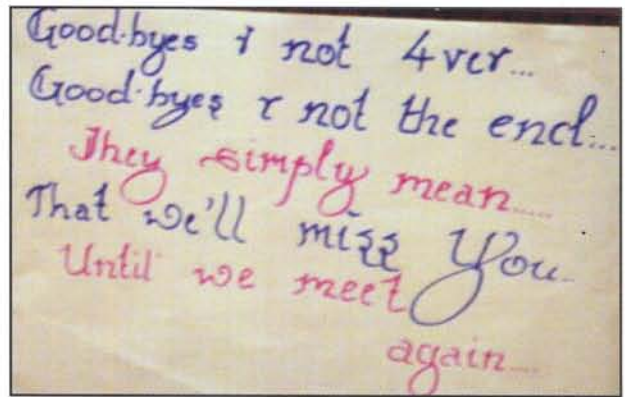 Good-byes r not 4ver...
Good-byes r not the end...
They simply mean.....
That we'll miss You..
Until we meet
again....